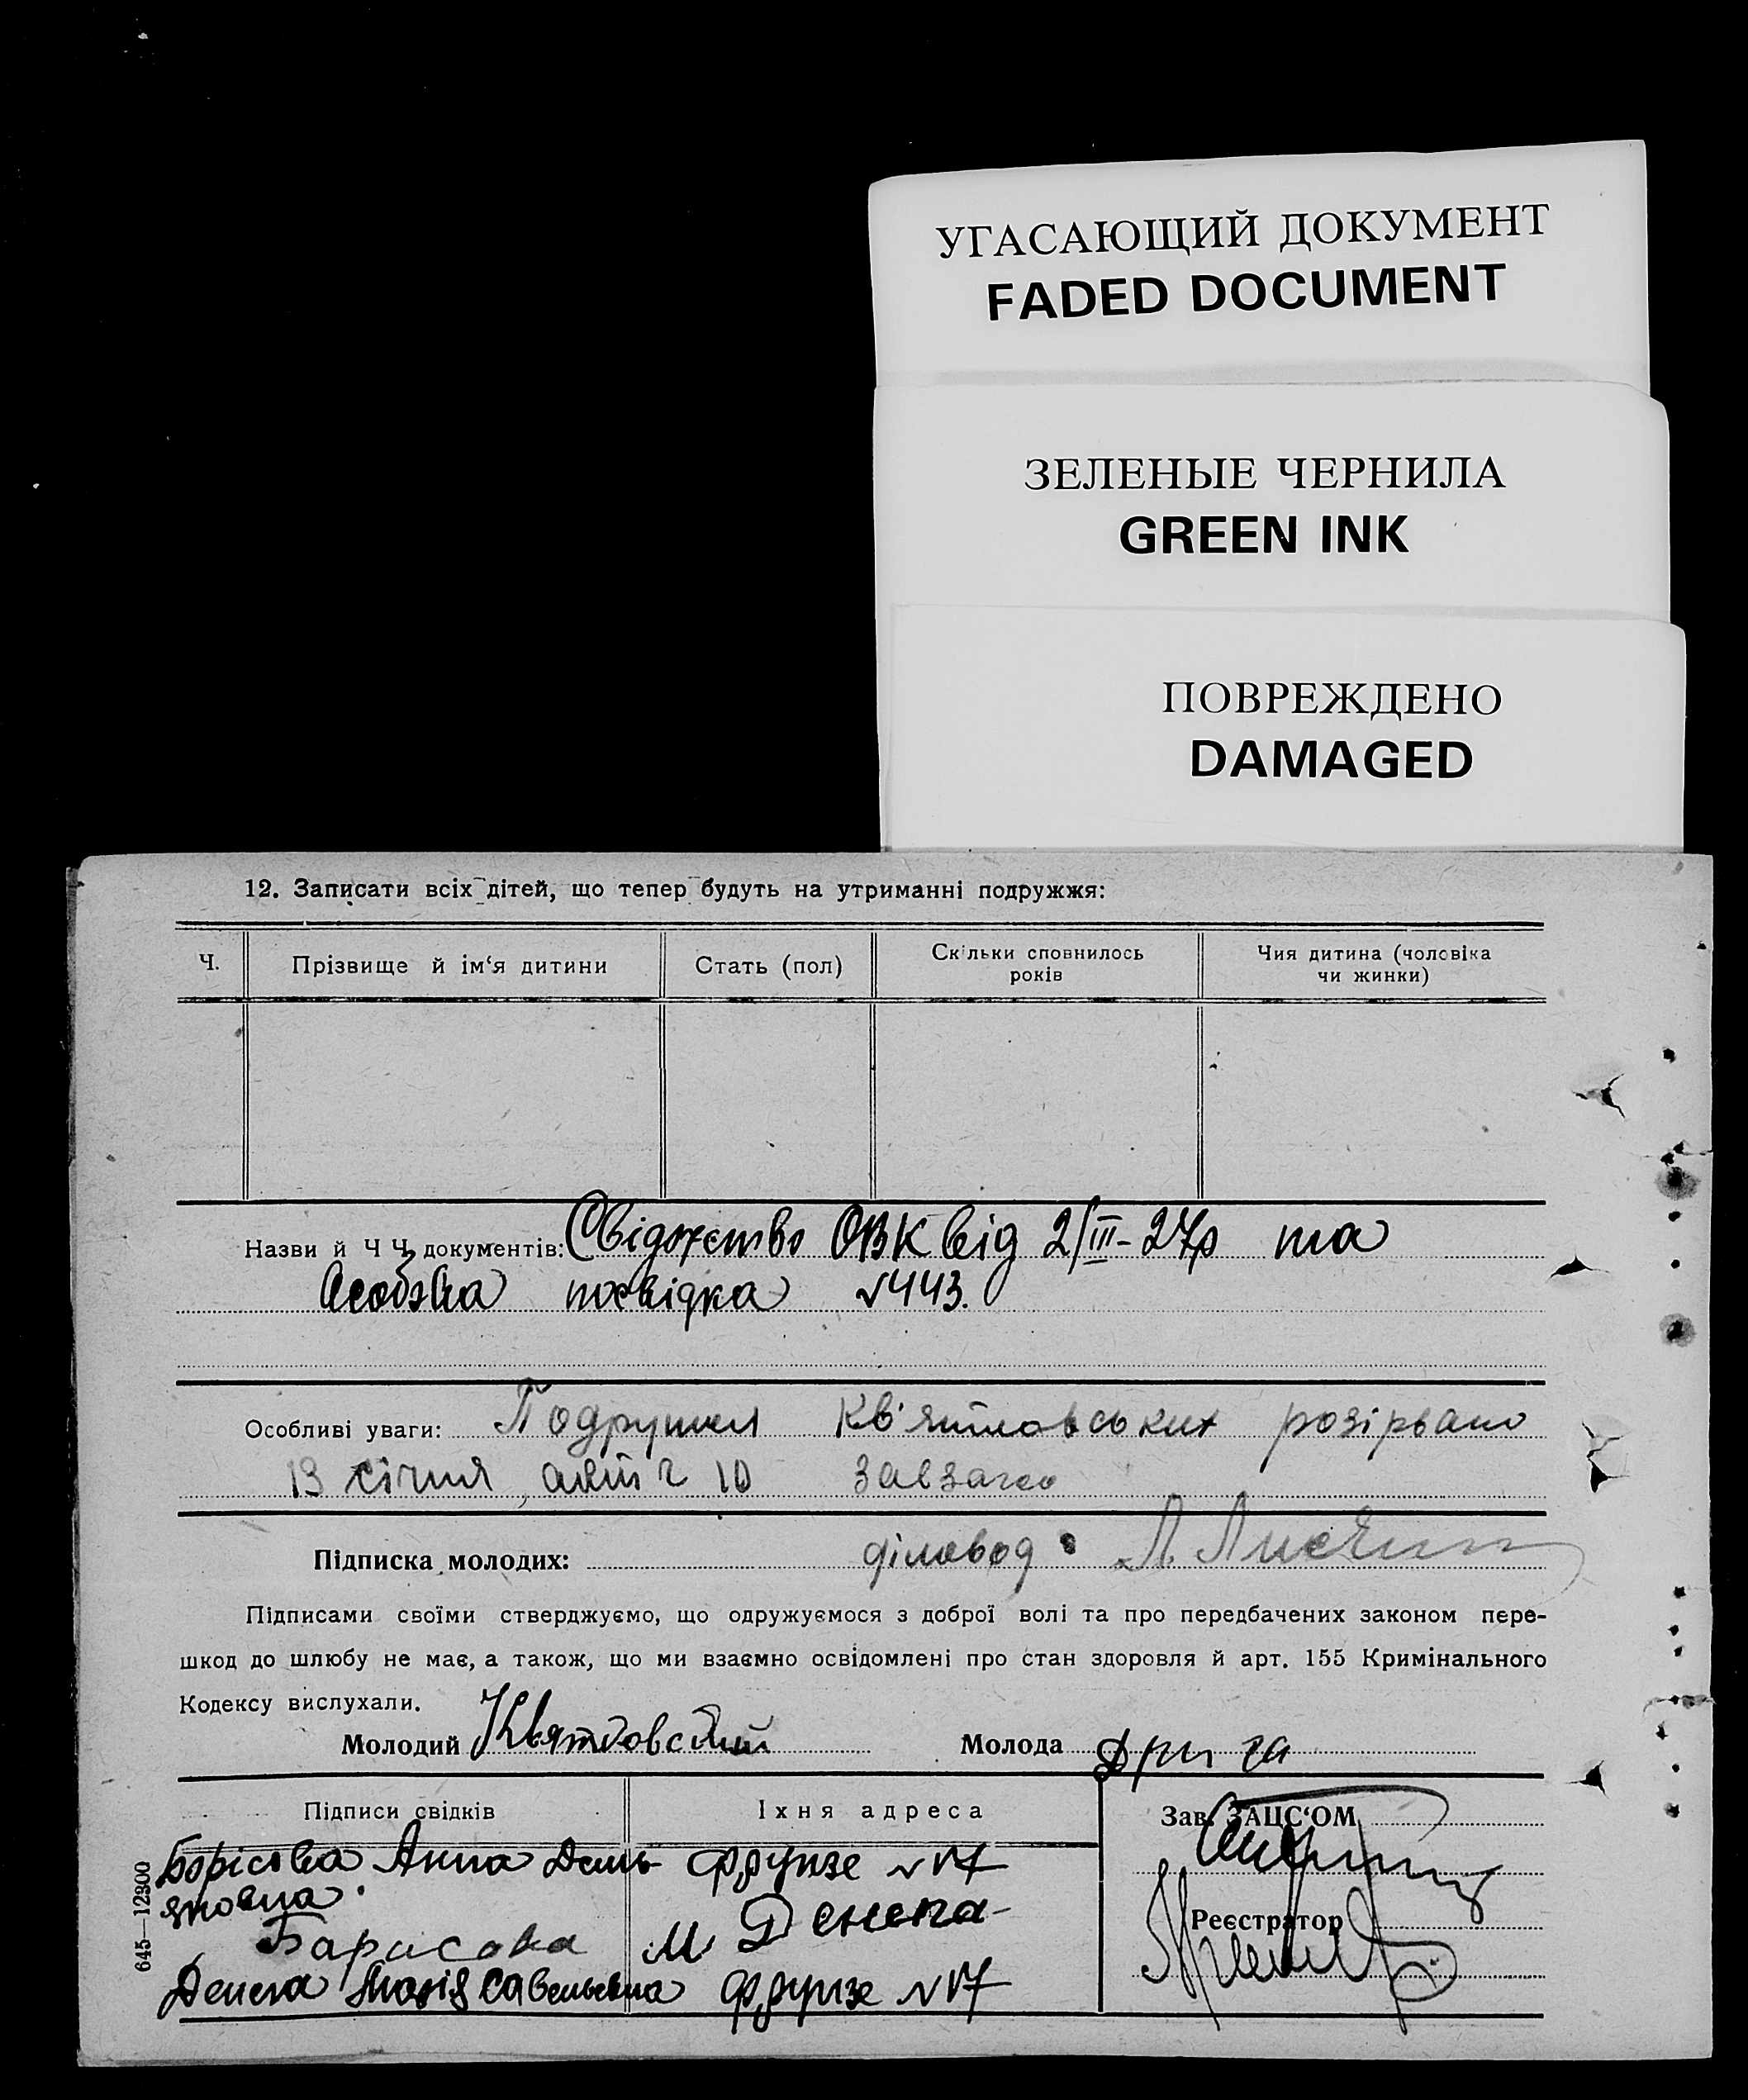 УГАСАЮЩИЙ ДОКУМЕНТ
FADED DOCUMENT
ЗЕЛЕНЫЕ ЧЕРНИЛА
GREEN INK
ПОВРЕЖДЕНО
DAMAGED
12. Записати всіх дітей, що тепер будуть на утриманні подружжя:
Ч.
Прізвище й ім‘я дитини
Стать (пол)
Скільки сповнилось
років
Чия дитина (чоловіка
чи жинки)
Назви й Ч Ч документів: Свідоцтво ОВК від 2/III-27р та
Особова посвідка №443.
Особливі уваги: Подружжя Кв'ятковських розірвано
13 січня, акт ч 10
Підписка молодих: діловод:
Підписами своїми стверджуємо, що одружуємося з доброї волі та про передбачених законом пере-
шкод до шлюбу не має, а також, що ми взаємно освідомлені про стан здоровля й арт. 155 Кримінального
Кодексу вислухали.
Молодий Квятковский Молода
Підписи свідків
Їхня адреса
Зав. ЗАЦС‘ОМ
Борісова Анна Демь- Фрунзе №17
яновна
Реєстратор
Барисова М Денега
Денега Марія Савельевна Фрунзе №17
645—12300